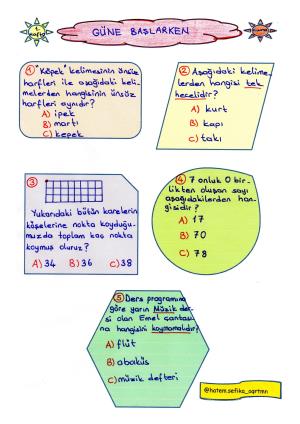 1. sınıf
GÜNE BAŞLARKEN
① "Köpek" kelimesinin ünsüz
harfleri ile aşağıdaki keli-
melerden hangisinin ünsüz
harfleri aynıdır?
A) ipek
B) martı
C) kepek
② Aşağıdaki kelime-
lerden hangisi tek
hecelidir?
A) kurt
B) kapı
C) takı
③
Yukarıdaki bütün karelerin
köşelerine nokta koyduğu-
muzda toplam kaç nokta
koymuş oluruz?
A) 34 B) 36 C) 38
④ 7 onluk 0 bir-
likten oluşan sayı
aşağıdakilerden han-
gisidir?
A) 17
B) 70
C) 78
⑤ Ders programına
göre yarın Müzik der-
si olan Emel çantası-
na hangisini koymamalıdır?
A) flüt
B) abaküs
C) müzik defteri
@hatem.sefika_ogrtmn